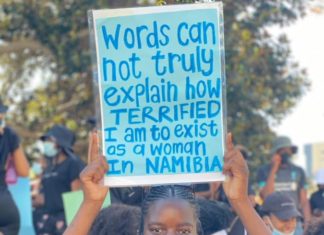 Words can
not truly
explain how
TERRIFIED
I am to exist
as a woman
in NAMIBIA